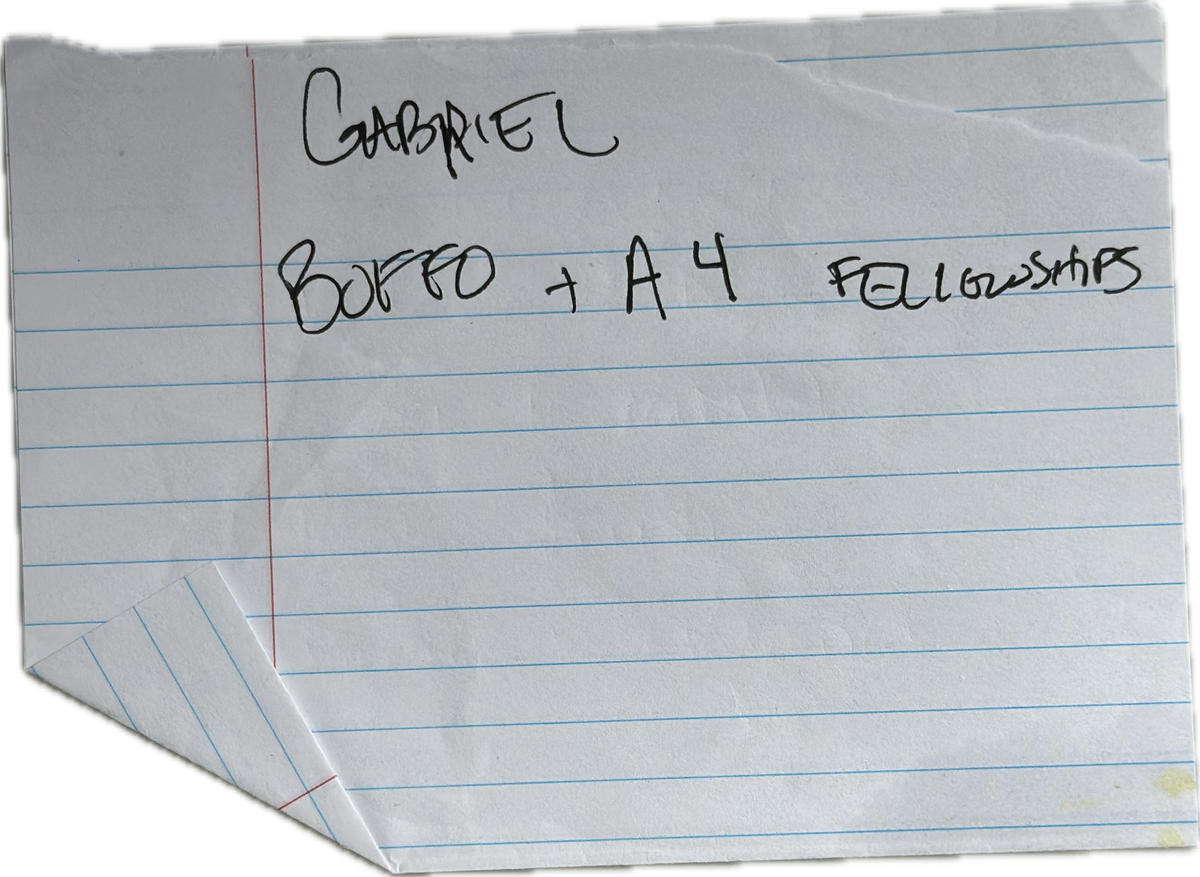 GABRIEL
BOFFO + A4 FELLOWSHIPS